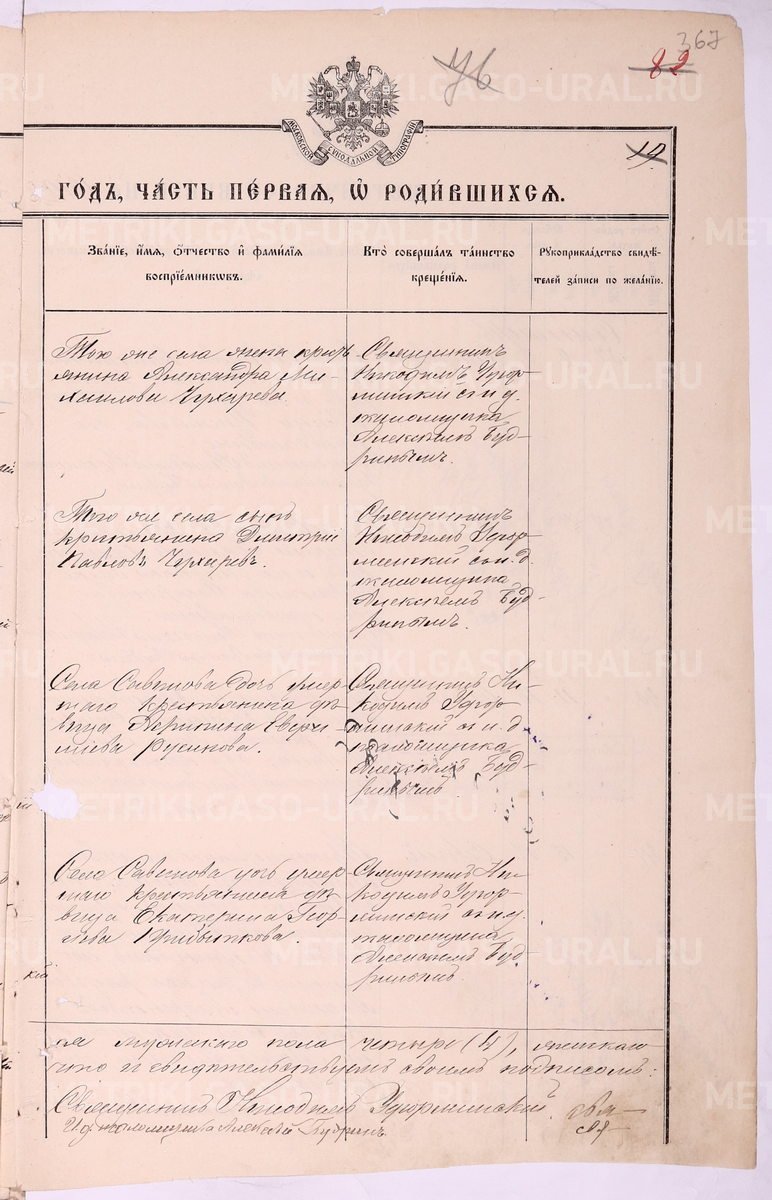 367
76
82
МОСКОВСКОЙ СѴНОДАЛЬНОЙ ТИПОГРАФІИ
19.
ГО́ДЪ, ЧА́СТЬ ПЕ́РВАЯ, Ѡ҆ РОДИ́ВШИХСЯ.
Зва́нїе, и҆́мя, ѻ҆́тчество и҆ фами́лїя
воспрїе́мникѡвъ.
Кто̀ соверша́лъ та́инство
креще́нїя.
Рꙋкоприкла́дство свидѣ́-
телей за́писи по жела́нїю.
Того же села жена кресть
янина Александра Ми-
хаилова Чухарева
Священникъ
Никодимъ Удор-
минский съ и. д.
псаломщика
Алексѣемъ Буд-
ринымъ.
Того же села сынъ
крестьянина Димитрий
Павловъ Чухаревъ.
Священникъ
Никодимъ Удор-
минский съ и. д.
псаломщика
Алексѣемъ Буд-
ринымъ.
Села Савинова дочь умер-
шаго крестьянина дѣ-
вица
Русинова.
Священникъ Ни-
кодимъ Удор-
минский съ и. д.
псаломщика
Алексѣемъ Буд-
ринымъ
Села Савинова дочь умер-
шаго крестьянина дѣ-
вица Екатерина Геор-
гиева
Священникъ Ни-
кодимъ Удор-
минский съ и. д.
псаломщика
Алексѣемъ Буд-
ринымъ
кій
мужескаго пола четыре (4), женскаго
что и свидѣтельствуемъ своимъ подписомъ:
Священникъ Никодимъ Удорминский.
И. д. псаломщика Алексѣй Будринъ.
METRIKI.GASO-URAL.RU